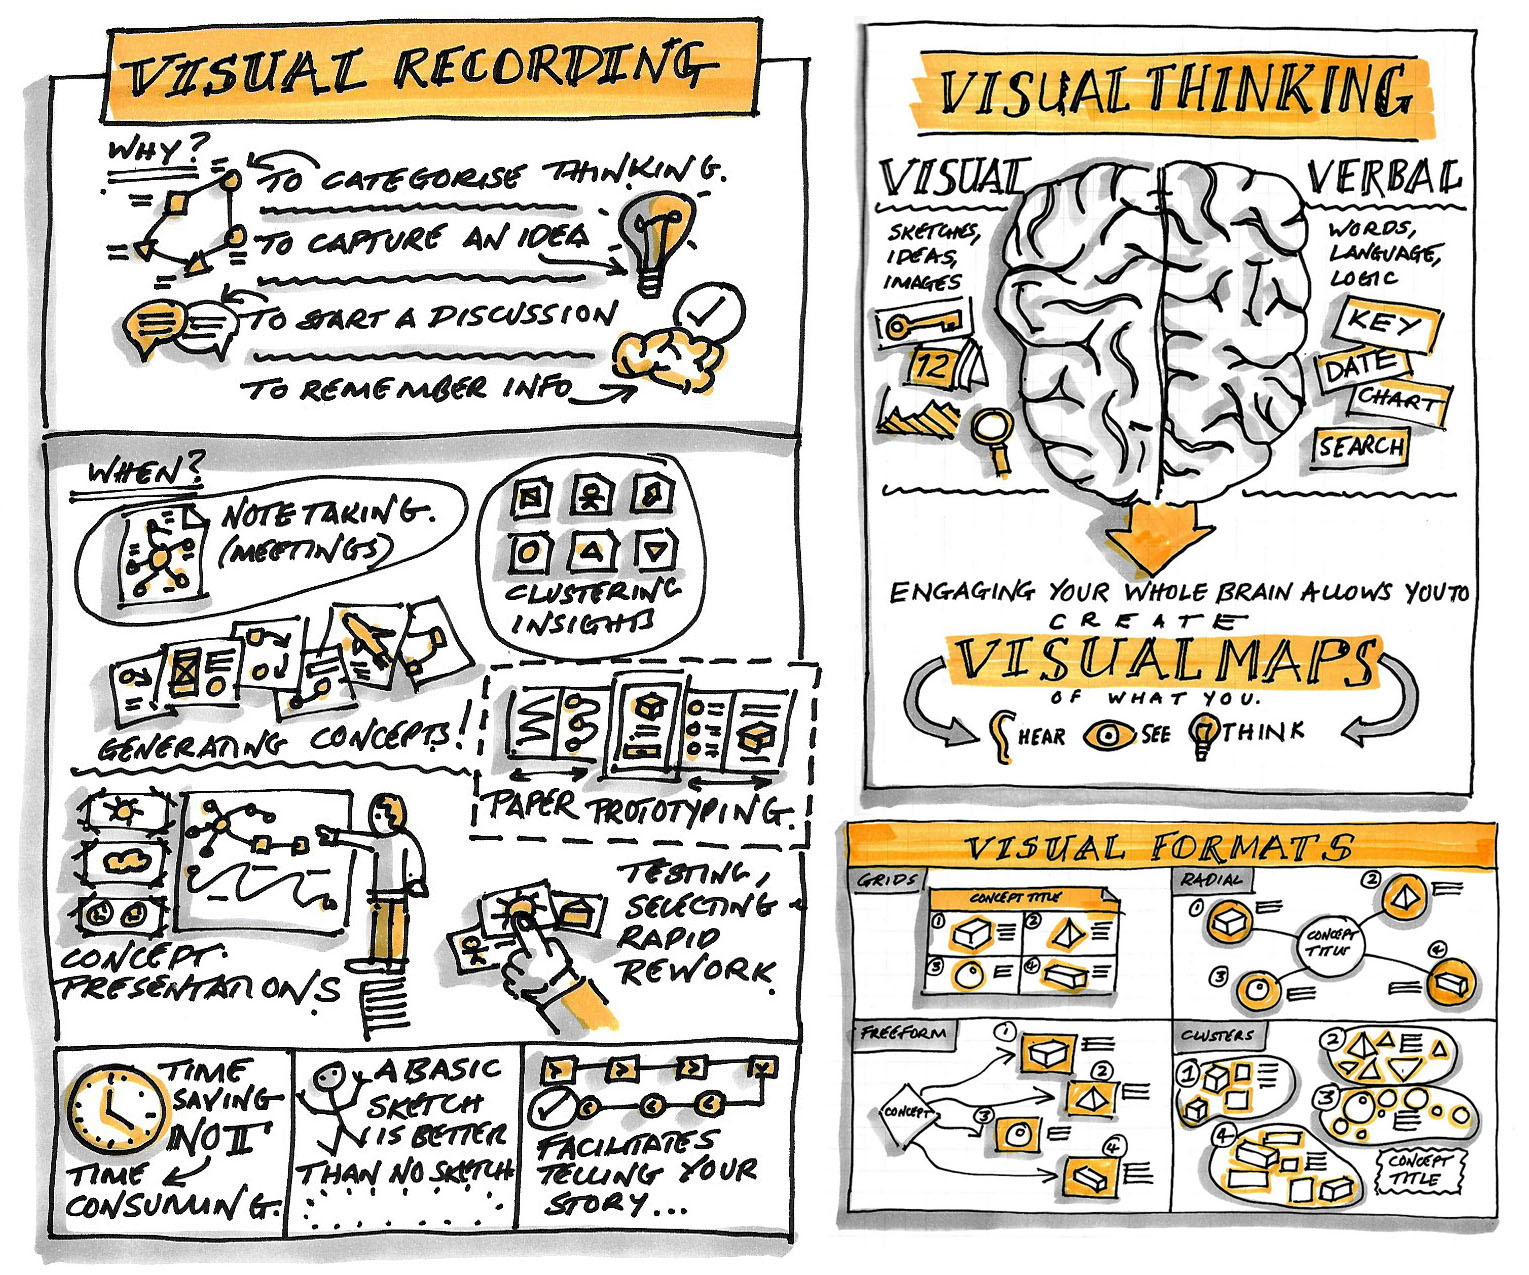 VISUAL RECORDING
WHY?
TO CATEGORISE THINKING.
TO CAPTURE AN IDEA
TO START A DISCUSSION
TO REMEMBER INFO
WHEN?
NOTE TAKING.
(MEETINGS)
CLUSTERING
INSIGHTS
GENERATING CONCEPTS!
PAPER PROTOTYPING.
CONCEPT.
PRESENTATIONS
TESTING,
SELECTING &
RAPID
REWORK.
TIME
SAVING
NOT
TIME
CONSUMING.
A BASIC
SKETCH
IS BETTER
THAN NO SKETCH
FACILITATES
TELLING YOUR
STORY...
VISUAL THINKING
VISUAL
SKETCHES,
IDEAS,
IMAGES
12
VERBAL
WORDS,
LANGUAGE,
LOGIC
KEY
DATE
CHART
SEARCH
ENGAGING YOUR WHOLE BRAIN ALLOWS YOU TO
CREATE
VISUAL MAPS
OF WHAT YOU.
HEAR SEE THINK
VISUAL FORMATS
GRIDS
CONCEPT TITLE
1 2
3 4
RADIAL
2
1
CONCEPT
TITLE
4
3
FREEFORM
1
2
CONCEPT
3
4
CLUSTERS
2
1
3
4
CONCEPT
TITLE